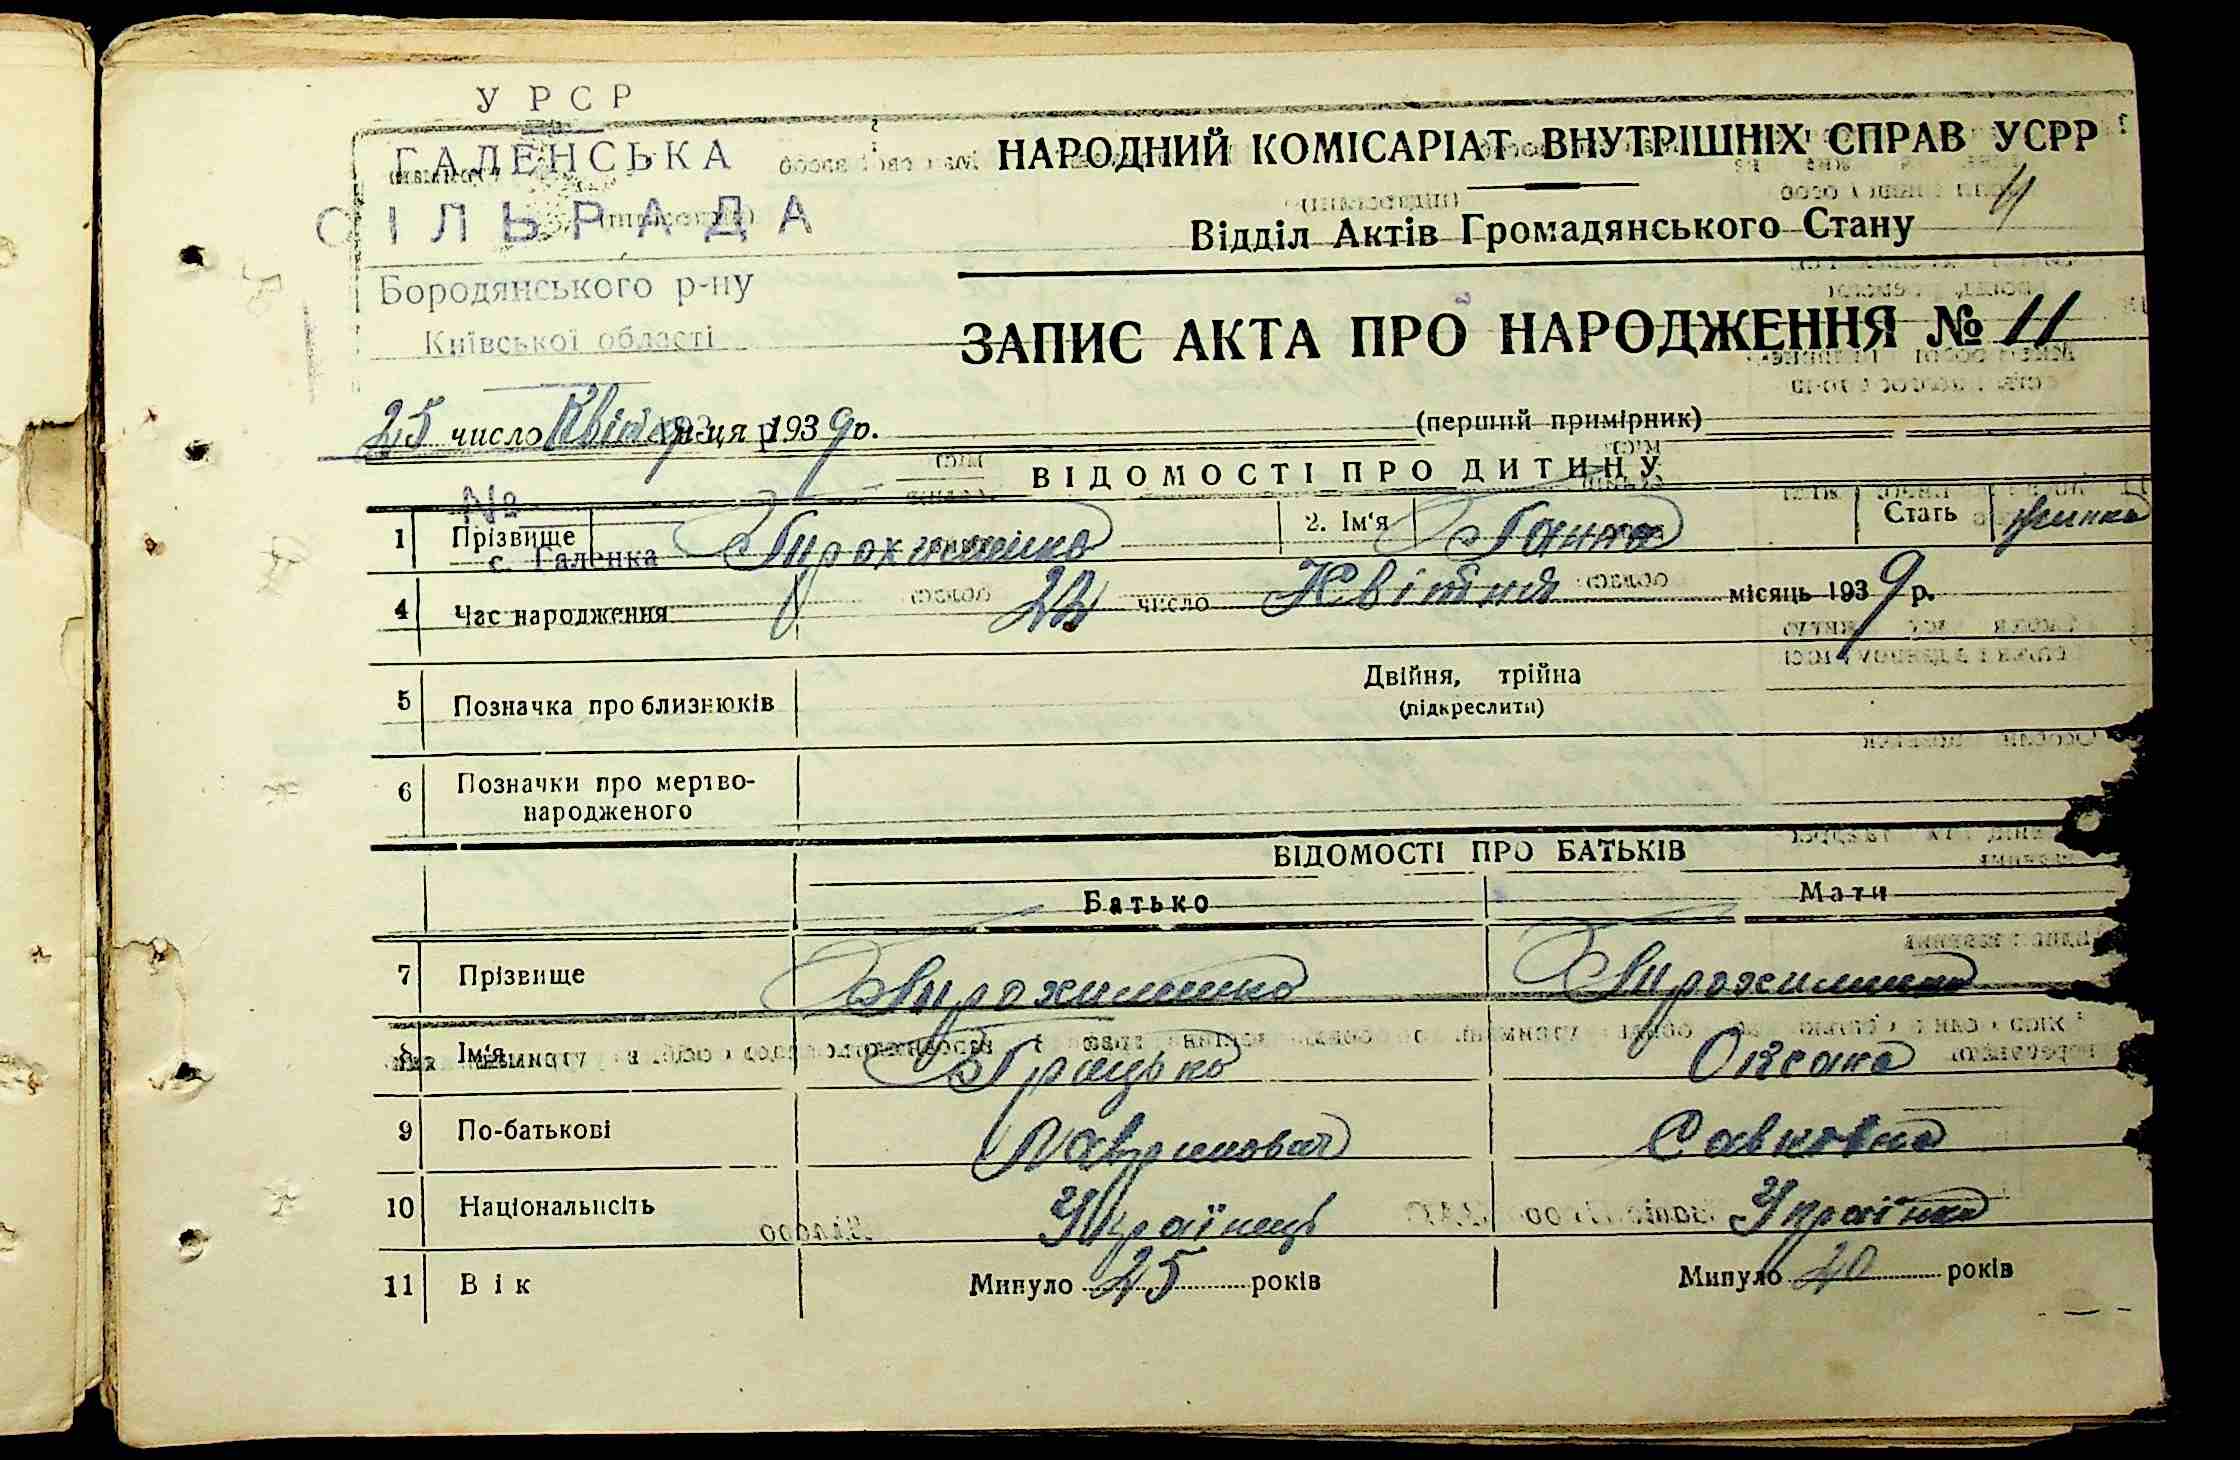 УРСР
ГАЛЕНСЬКА
СІЛЬРАДА
Бородянського р-ну
Київської області
№
с. Галенка
НАРОДНИЙ КОМІСАРІАТ ВНУТРІШНІХ СПРАВ УСРР
Відділ Актів Громадянського Стану
ЗАПИС АКТА ПРО НАРОДЖЕННЯ № 11
(перший примірник)
25 число Квітня місяця 1939 р.
ВІДОМОСТІ ПРО ДИТИНУ
1 Прізвище 2. Ім'я Ганна Стать жінка
4 Час народження число Квітня місяць 1939 р.
5 Позначка про близнюків Двійня, трійна
(підкреслити)
6 Позначки про мертво-
народженого
ВІДОМОСТІ ПРО БАТЬКІВ
Батько Мати
7 Прізвище
8 Ім'я Грицько Оксана
9 По-батькові Савковна
10 Національнсіть Українець Українка
11 Вік Минуло 25 років Минуло 20 років